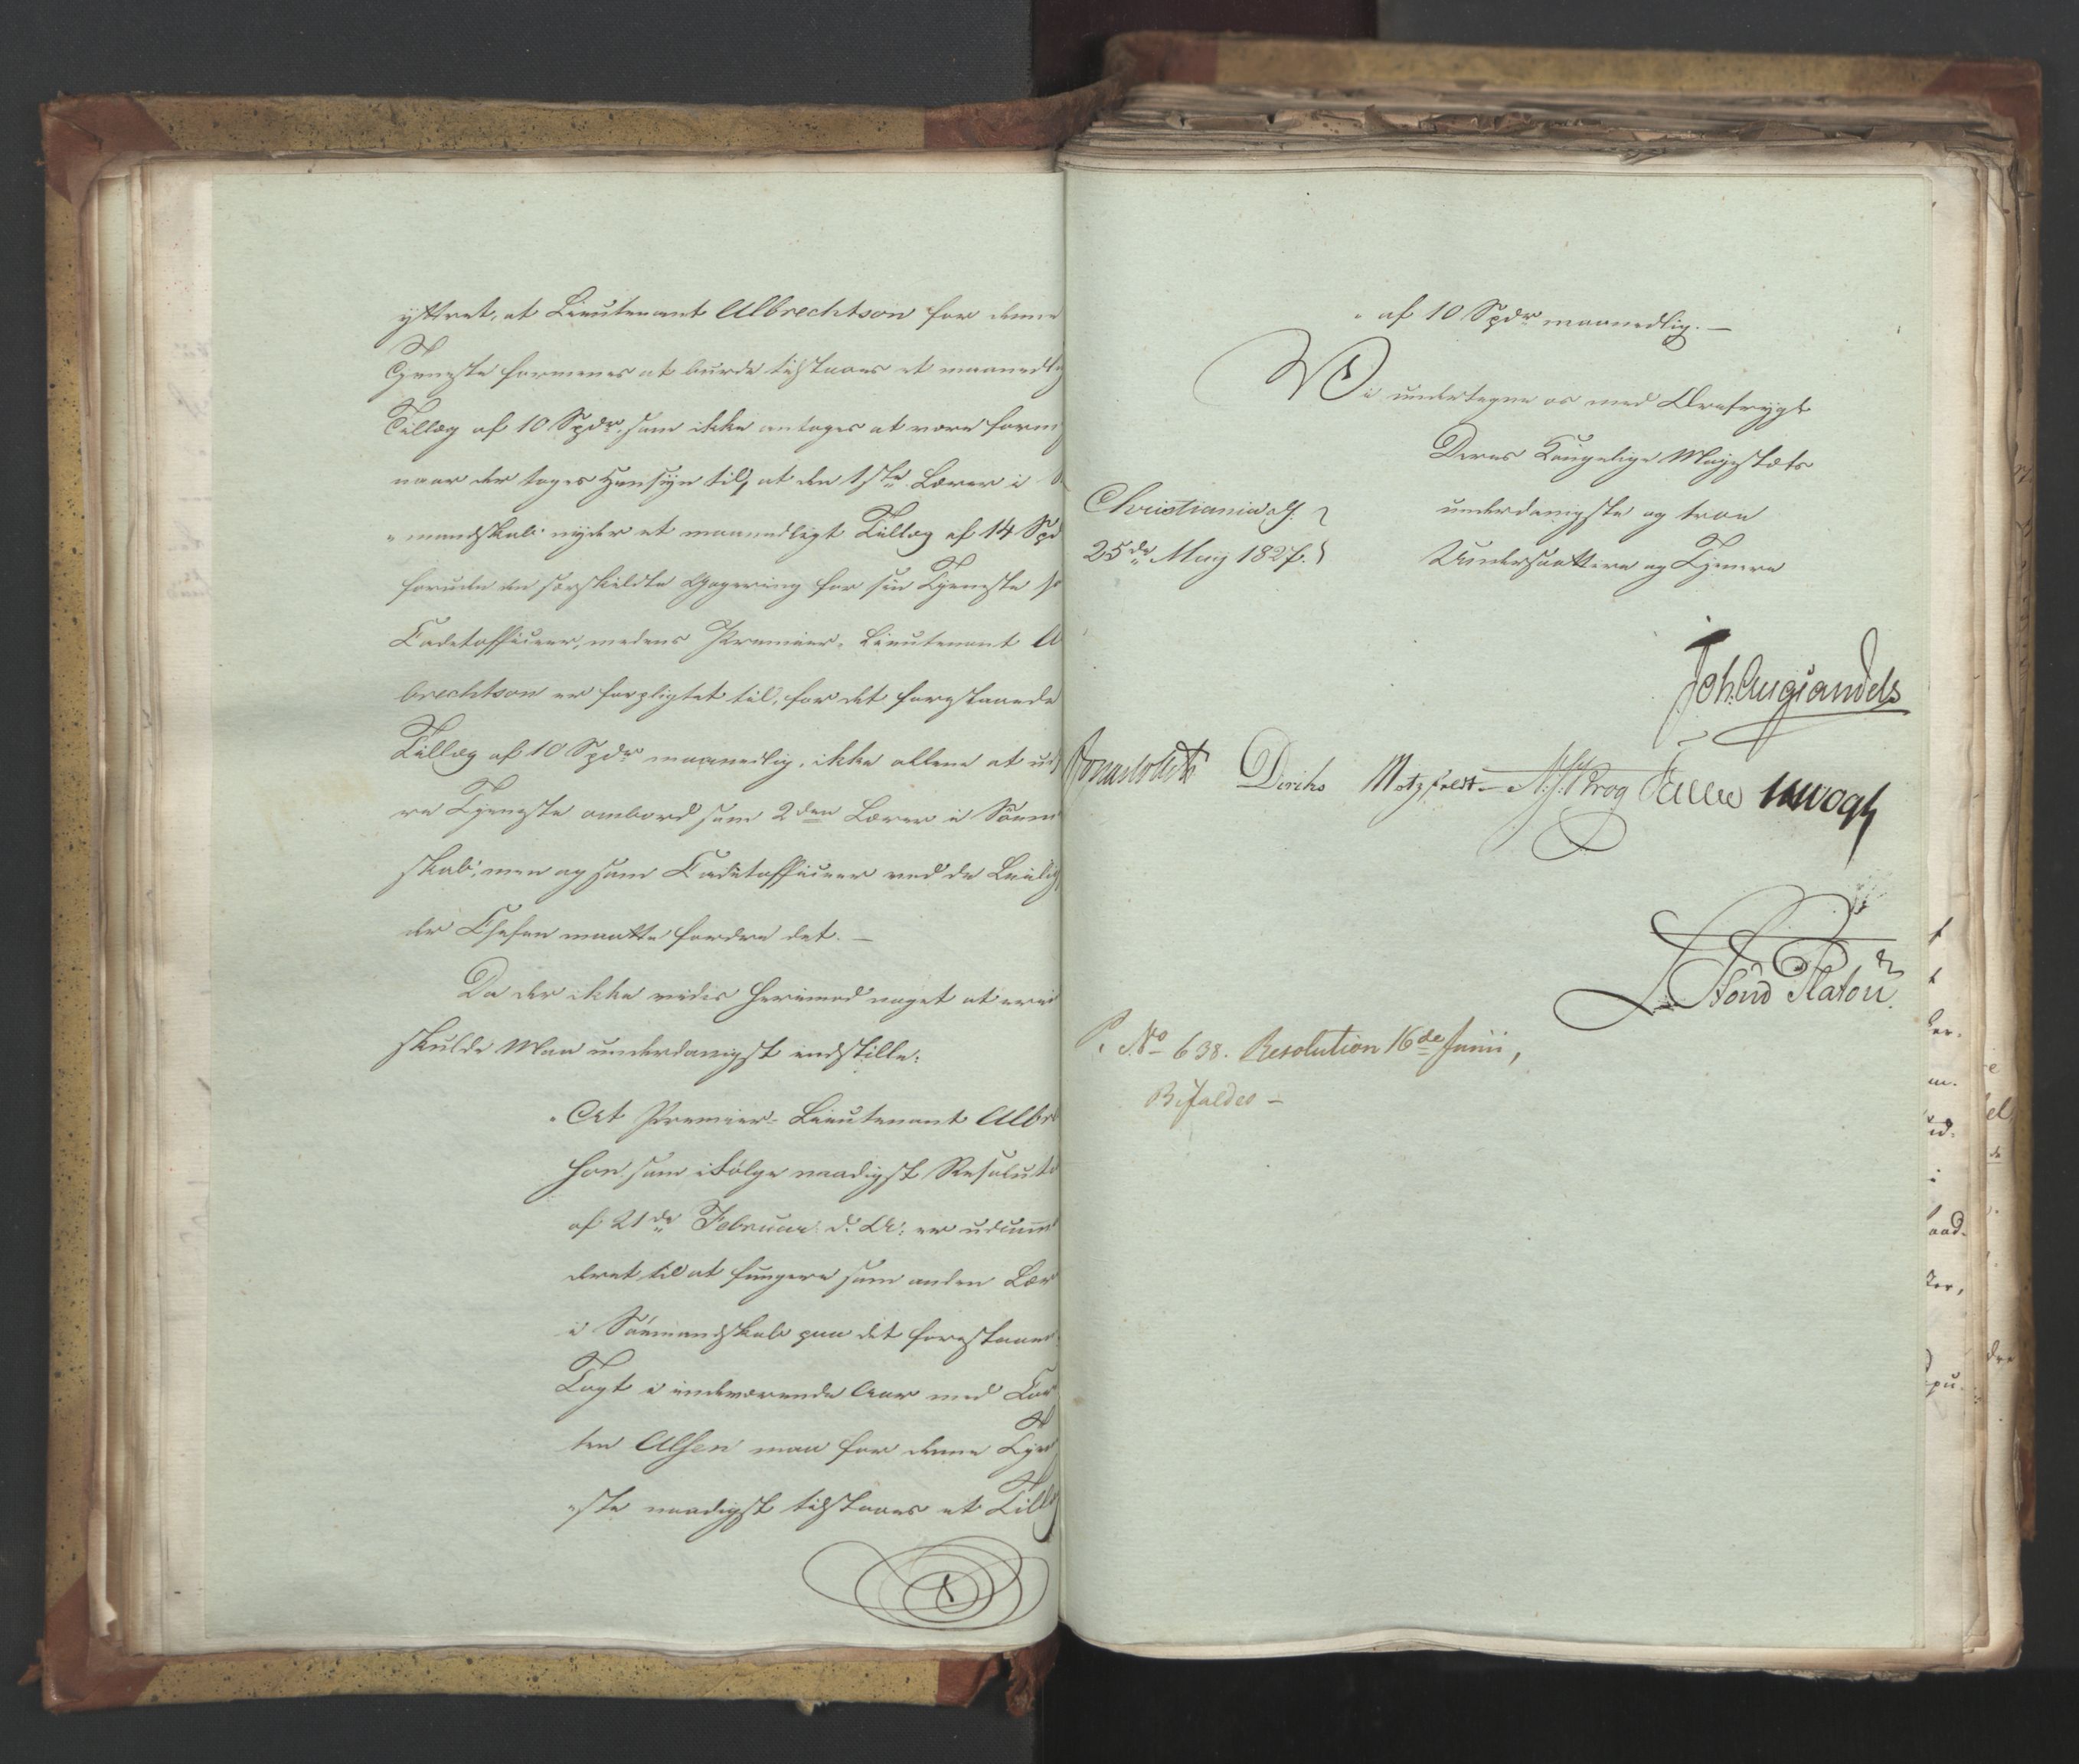 yttret, at Lieutenant Albrechtson for denne
Tjeneste formenes at burde tilstaaes et maanedlig
Tillæg af 10 Spdr, som ikke antages at være form
naar der tages Hensyn til, at den 1ste Lærer i
mandskab nyder et maanedligt Tillæg af 14 Spd
foruden den særskildte Gagering for sin Tjeneste so
Cadetofficeer, medens Premier-Lieutenant Al
brechtson er forpligtet til, for det foreslaaede
Tillæg af 10 Spdr maanedlig, ikke allene at udf
re Tjeneste ombord som 2den Lærer i Søem
skab, men og som Cadetofficeer ved de Leilig
der Chefen maatte fordre det. —
Da der ikke vides herimod noget at erin
skulde Man underdanigst indstille:
At Premier-Lieutenant Albre
son, som ifølge naadigst Resoluti
af 21de Februar d. A. er udcomm
deret til at fungere som anden Lær
i Sømandskab paa det forestaaen
Togt i indeværende Aar med Cor
ten Alsen maa for denne Tjen
ste naadigst tilstaaes et Tillæg
af 10 Spdr maanedlig. —
Vi undertegne os med Ærefrygt
Deres Kongelige Majestæts
Christiania d.
underdanigste og troe
25de May 1827.
Undersaatter og Tjenere
Joh. Aug. Sandels
Jonas Collett Diriks Motzfeldt N. J. Krog Fasting
P. No 638. Resolution 16de Junii,
Bifaldes —